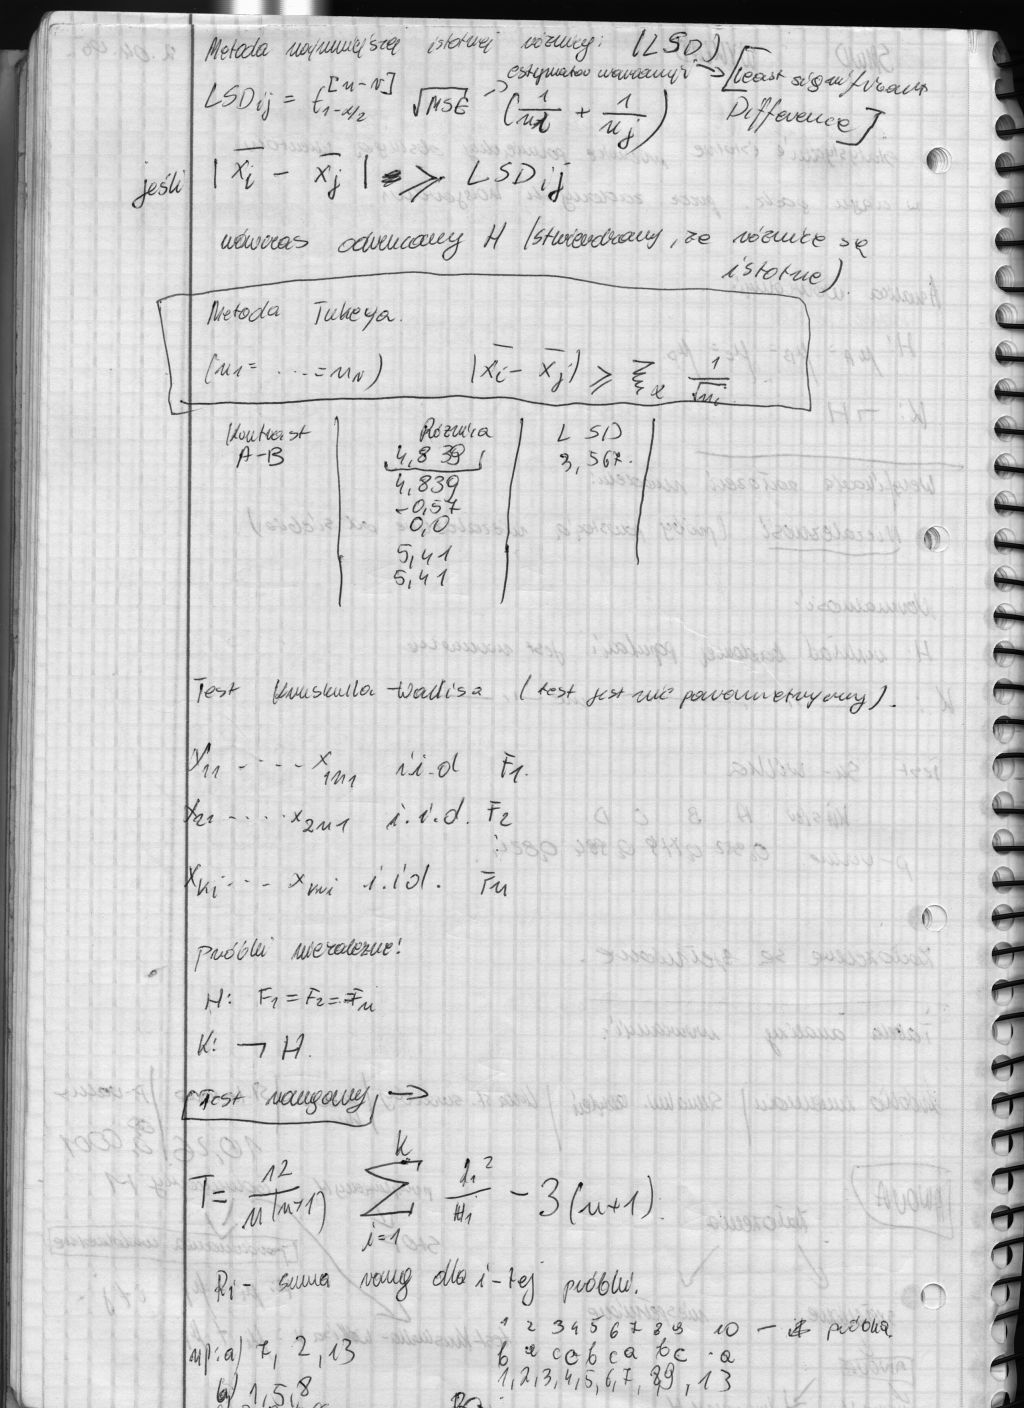 Metoda najmniejszej istotnej różnicy: (LSD)
estymator wariancji → [Least significant Difference]
LSDij = t [n-r] 1-α/2 √MSE (1/ni + 1/nj)
jeśli |x̄i - x̄j| ⩾ LSDij
wówczas odrzucamy H (stwierdzamy, że różnice są istotne).
Metoda Tukeya.
(n1= ...=nr) |x̄i - x̄j| ⩾ ξα 1/√ni
Kontrast Różnica LSD
A-B 4,839 3,567.
4,839
-0,57
0,0
5,41
5,41
Test Kruskalla-Wallisa (test jest nie parametryczny).
X11 ..... X1n1 i.i.d F1.
X21 ..... X2n1 i.i.d. F2
Xki ... Xkni i.i.d. Fn
próbki niezależne!
H: F1 = F2 = Fn
K: ¬ H.
Test rangowy →
T = 12/n(n+1) K Σ i=1 Ri²/ni - 3(n+1).
Ri - suma rang dla i-tej próbki.
1 2 3 4 5 6 7 8 9 10 - próbka
np: a) 7, 2, 13 b a c c b c a b c a
1, 2, 3, 4, 5, 6, 7, 8, 9, 13
b) 1, 5, 8